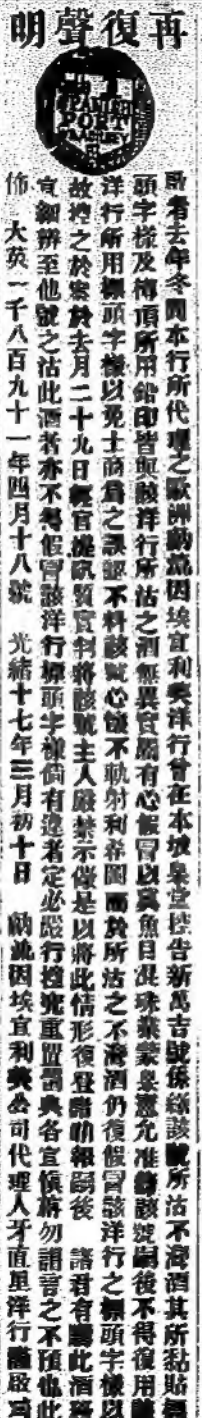 再復聲明
SPANISH
PORT
啟者去年冬間本行所代理之歐洲勒嵐因埃宜利奧洋行曾在本坡臬堂控告新萬吉號係緣該號所沽不濟酒其所黏貼標
頭字樣及樽頂所用鉛印皆與該洋行所沽之酒無異實屬有心假冒以冀魚目混珠業蒙臬憲允准該號嗣後不得復用該
洋行所用標頭字樣以免士商為之誤認不料該號心猶不耿射利希圖而於所沽之不濟酒仍復假冒該洋行之標頭字樣以
故控之於案於去月二十九日經官提訊質實判將該號主人嚴禁示儆是以將此情形復登諸叻報嗣後 諸君有購此酒務
宜細辨至他號之沽此酒者亦不得假冒該洋行標頭字樣倘有違者定必嚴行控究重置嚴典各宜慎旃勿謂言之不預也此
佈 大英一千八百九十一年四月十八號 光緒十七年三月初十日 嵐因埃宜利公司代理人牙直里洋行謹啟